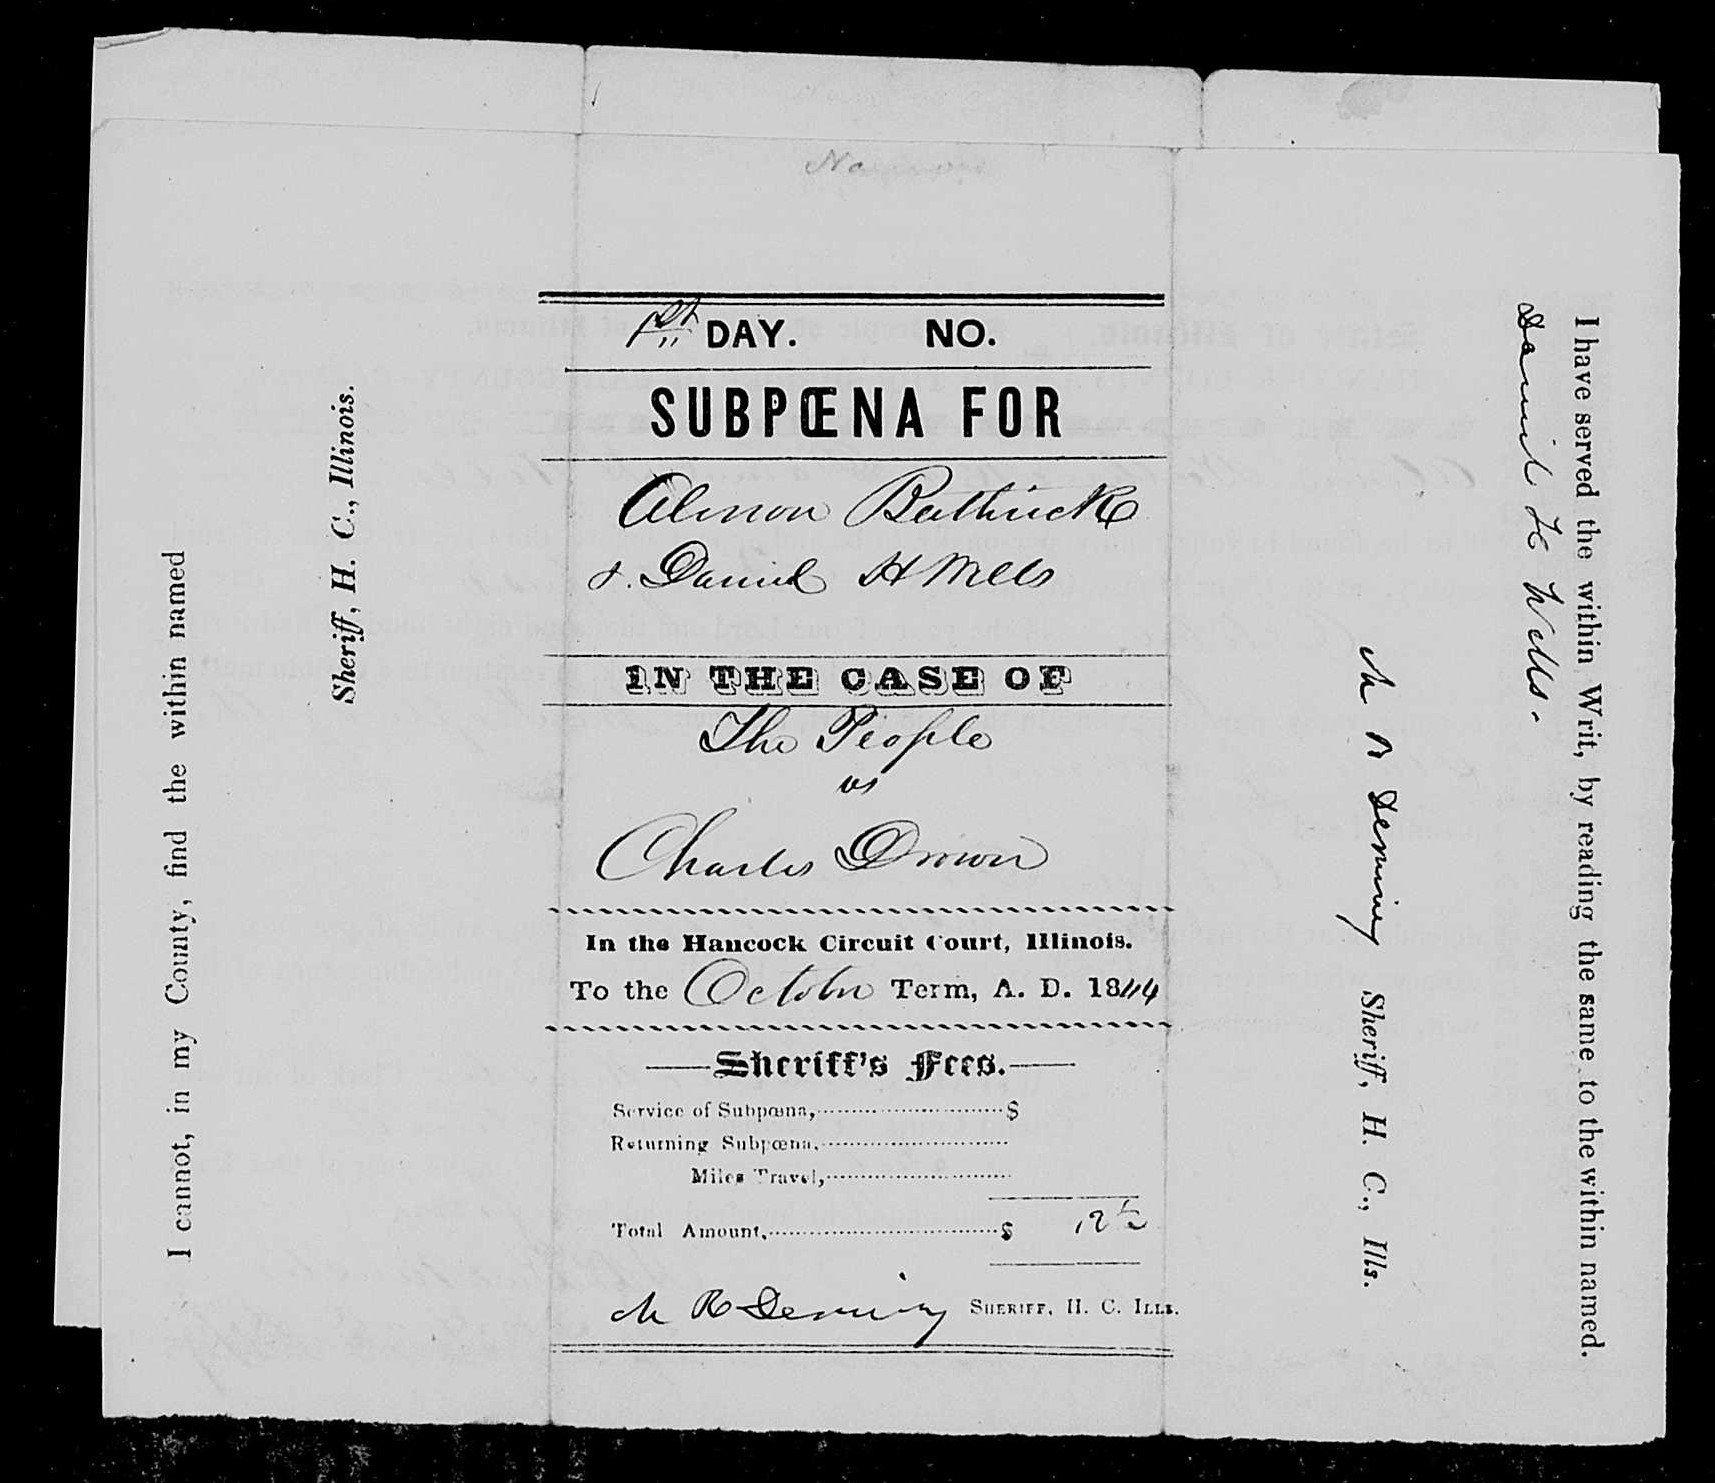 1st DAY. NO.
SUBPŒNA FOR
Almon Bathrick
&. Daniel H Wells
IN THE CASE OF
The People
vs
Charles Drown
In the Hancock Circuit Court, Illinois.
To the October Term, A. D. 1844
Sheriff's Fees.
Service of Subpœna, $
Returning Subpœna,
Miles Travel,
Total Amount, $ 12½
M R Deming SHERIFF, H. C. ILLS.
I cannot, in my County, find the within named
Sheriff, H. C., Illinois.
I have served the within Writ, by reading the same to the within named.
Daniel H Wells.
M R Deming Sheriff, H. C., Ills.